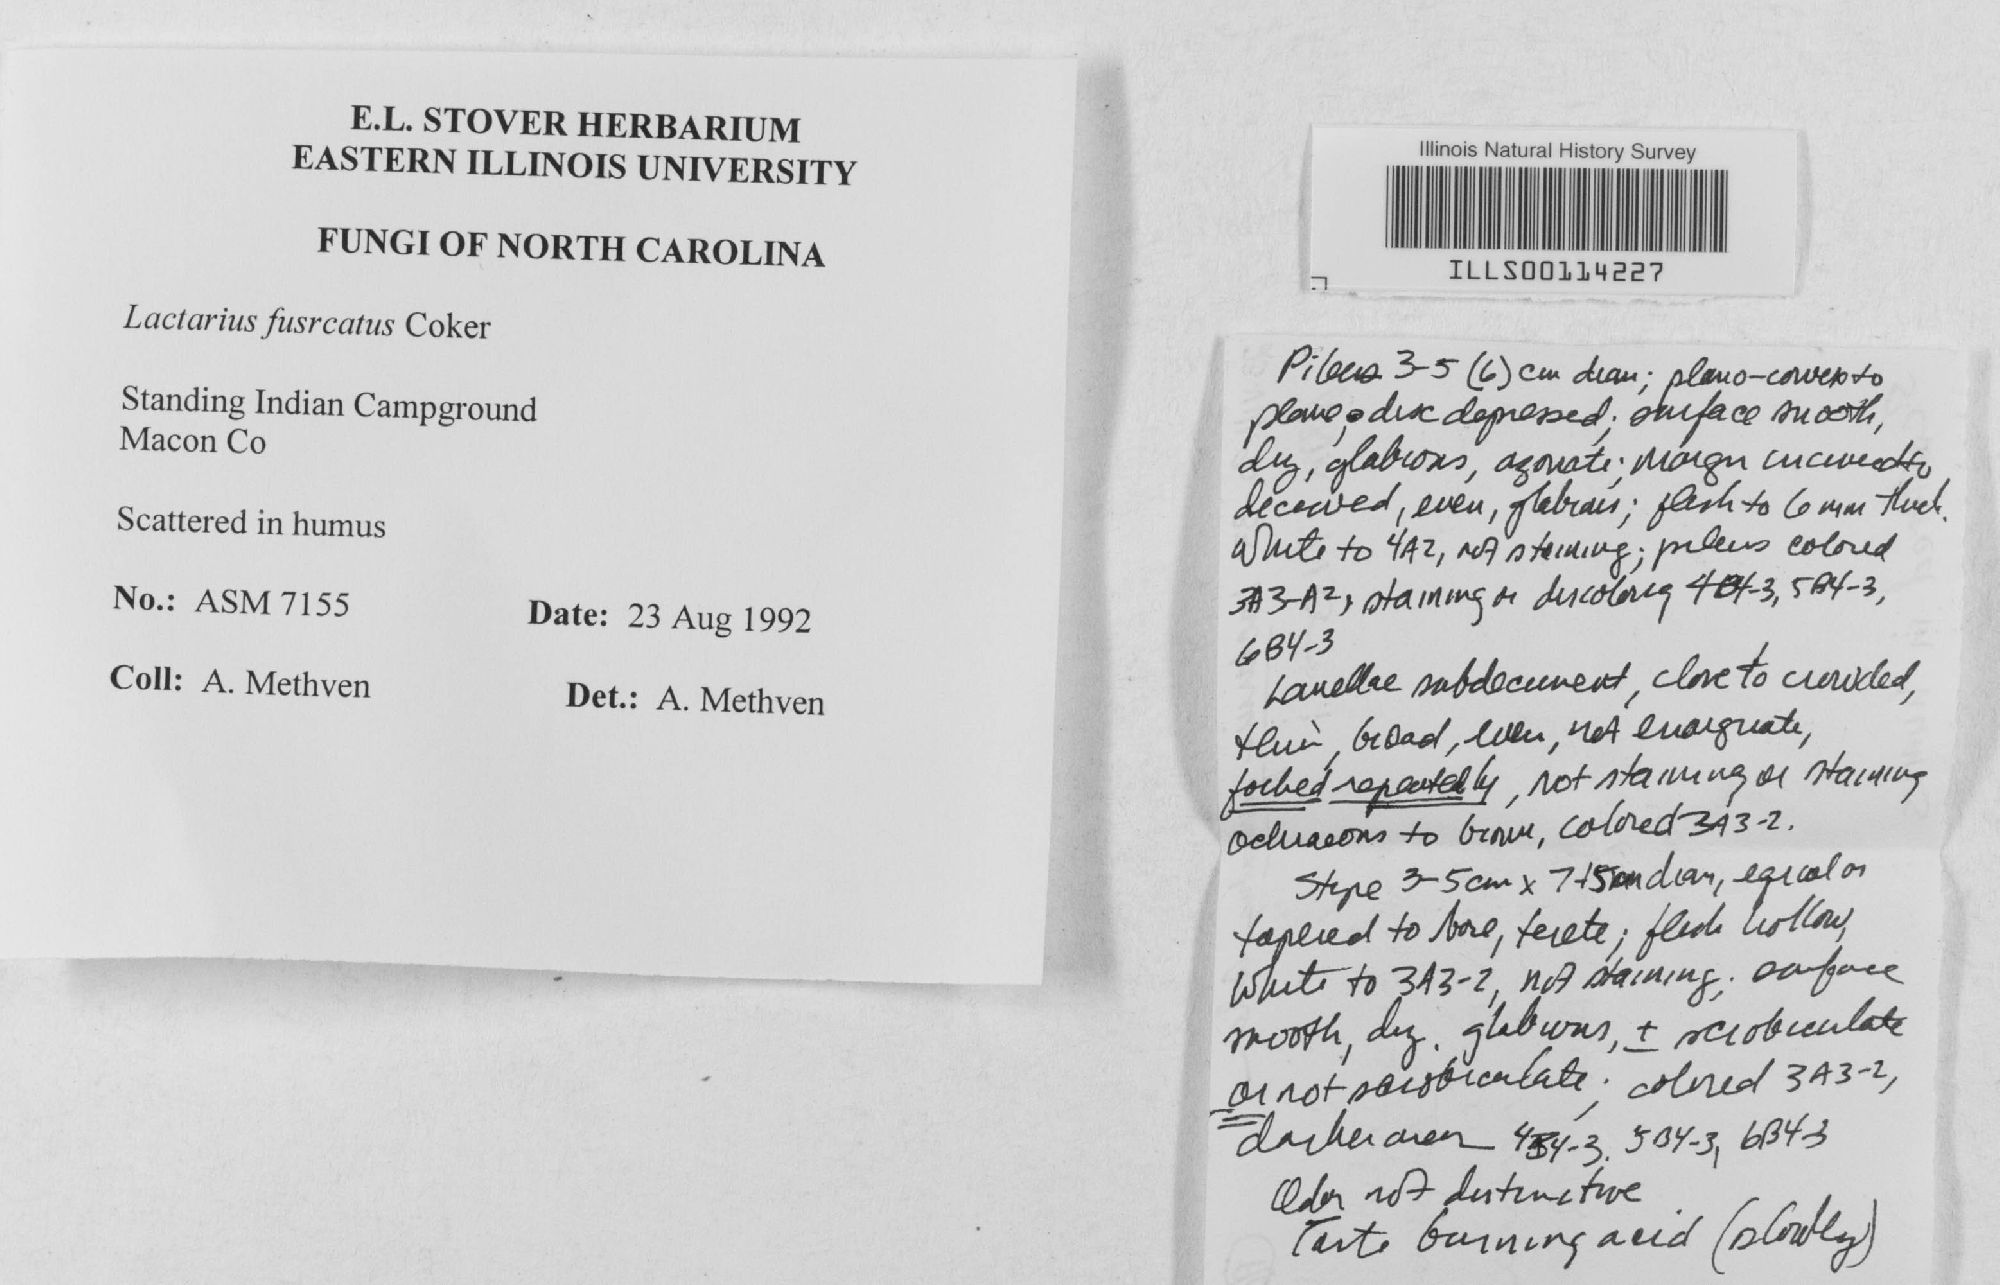 E.L. STOVER HERBARIUM
EASTERN ILLINOIS UNIVERSITY
FUNGI OF NORTH CAROLINA
Lactarius fusrcatus Coker
Standing Indian Campground
Macon Co
Scattered in humus
No.: ASM 7155 Date: 23 Aug 1992
Coll: A. Methven Det.: A. Methven
Illinois Natural History Survey
ILLS00114227
Pileus 3-5 (6) cm diam; plano-convex to
plane, disc depressed; surface smooth,
dry, glabrous, azonate; margin incurved to
decurved, even, glabrous; flesh to 6 mm thick.
White to 4A2, not staining; pileus colored
3A3-A2, staining or discoloring 4B4-3, 5B4-3,
6B4-3
Lamellae subdecurrent, close to crowded,
thin, broad, even, not emarginate,
forked repeatedly, not staining or staining
ochraceous to brown, colored 3A3-2.
Stipe 3-5cm x 7-15 mm diam, equal or
tapered to base, terete; flesh hollow,
White to 3A3-2, not staining; surface
smooth, dry, glabrous, ± scrobiculate
or not scrobiculate; colored 3A3-2,
darker over 4B4-3, 5B4-3, 6B4-3
Odor not distinctive
Taste burning acid (slowly)